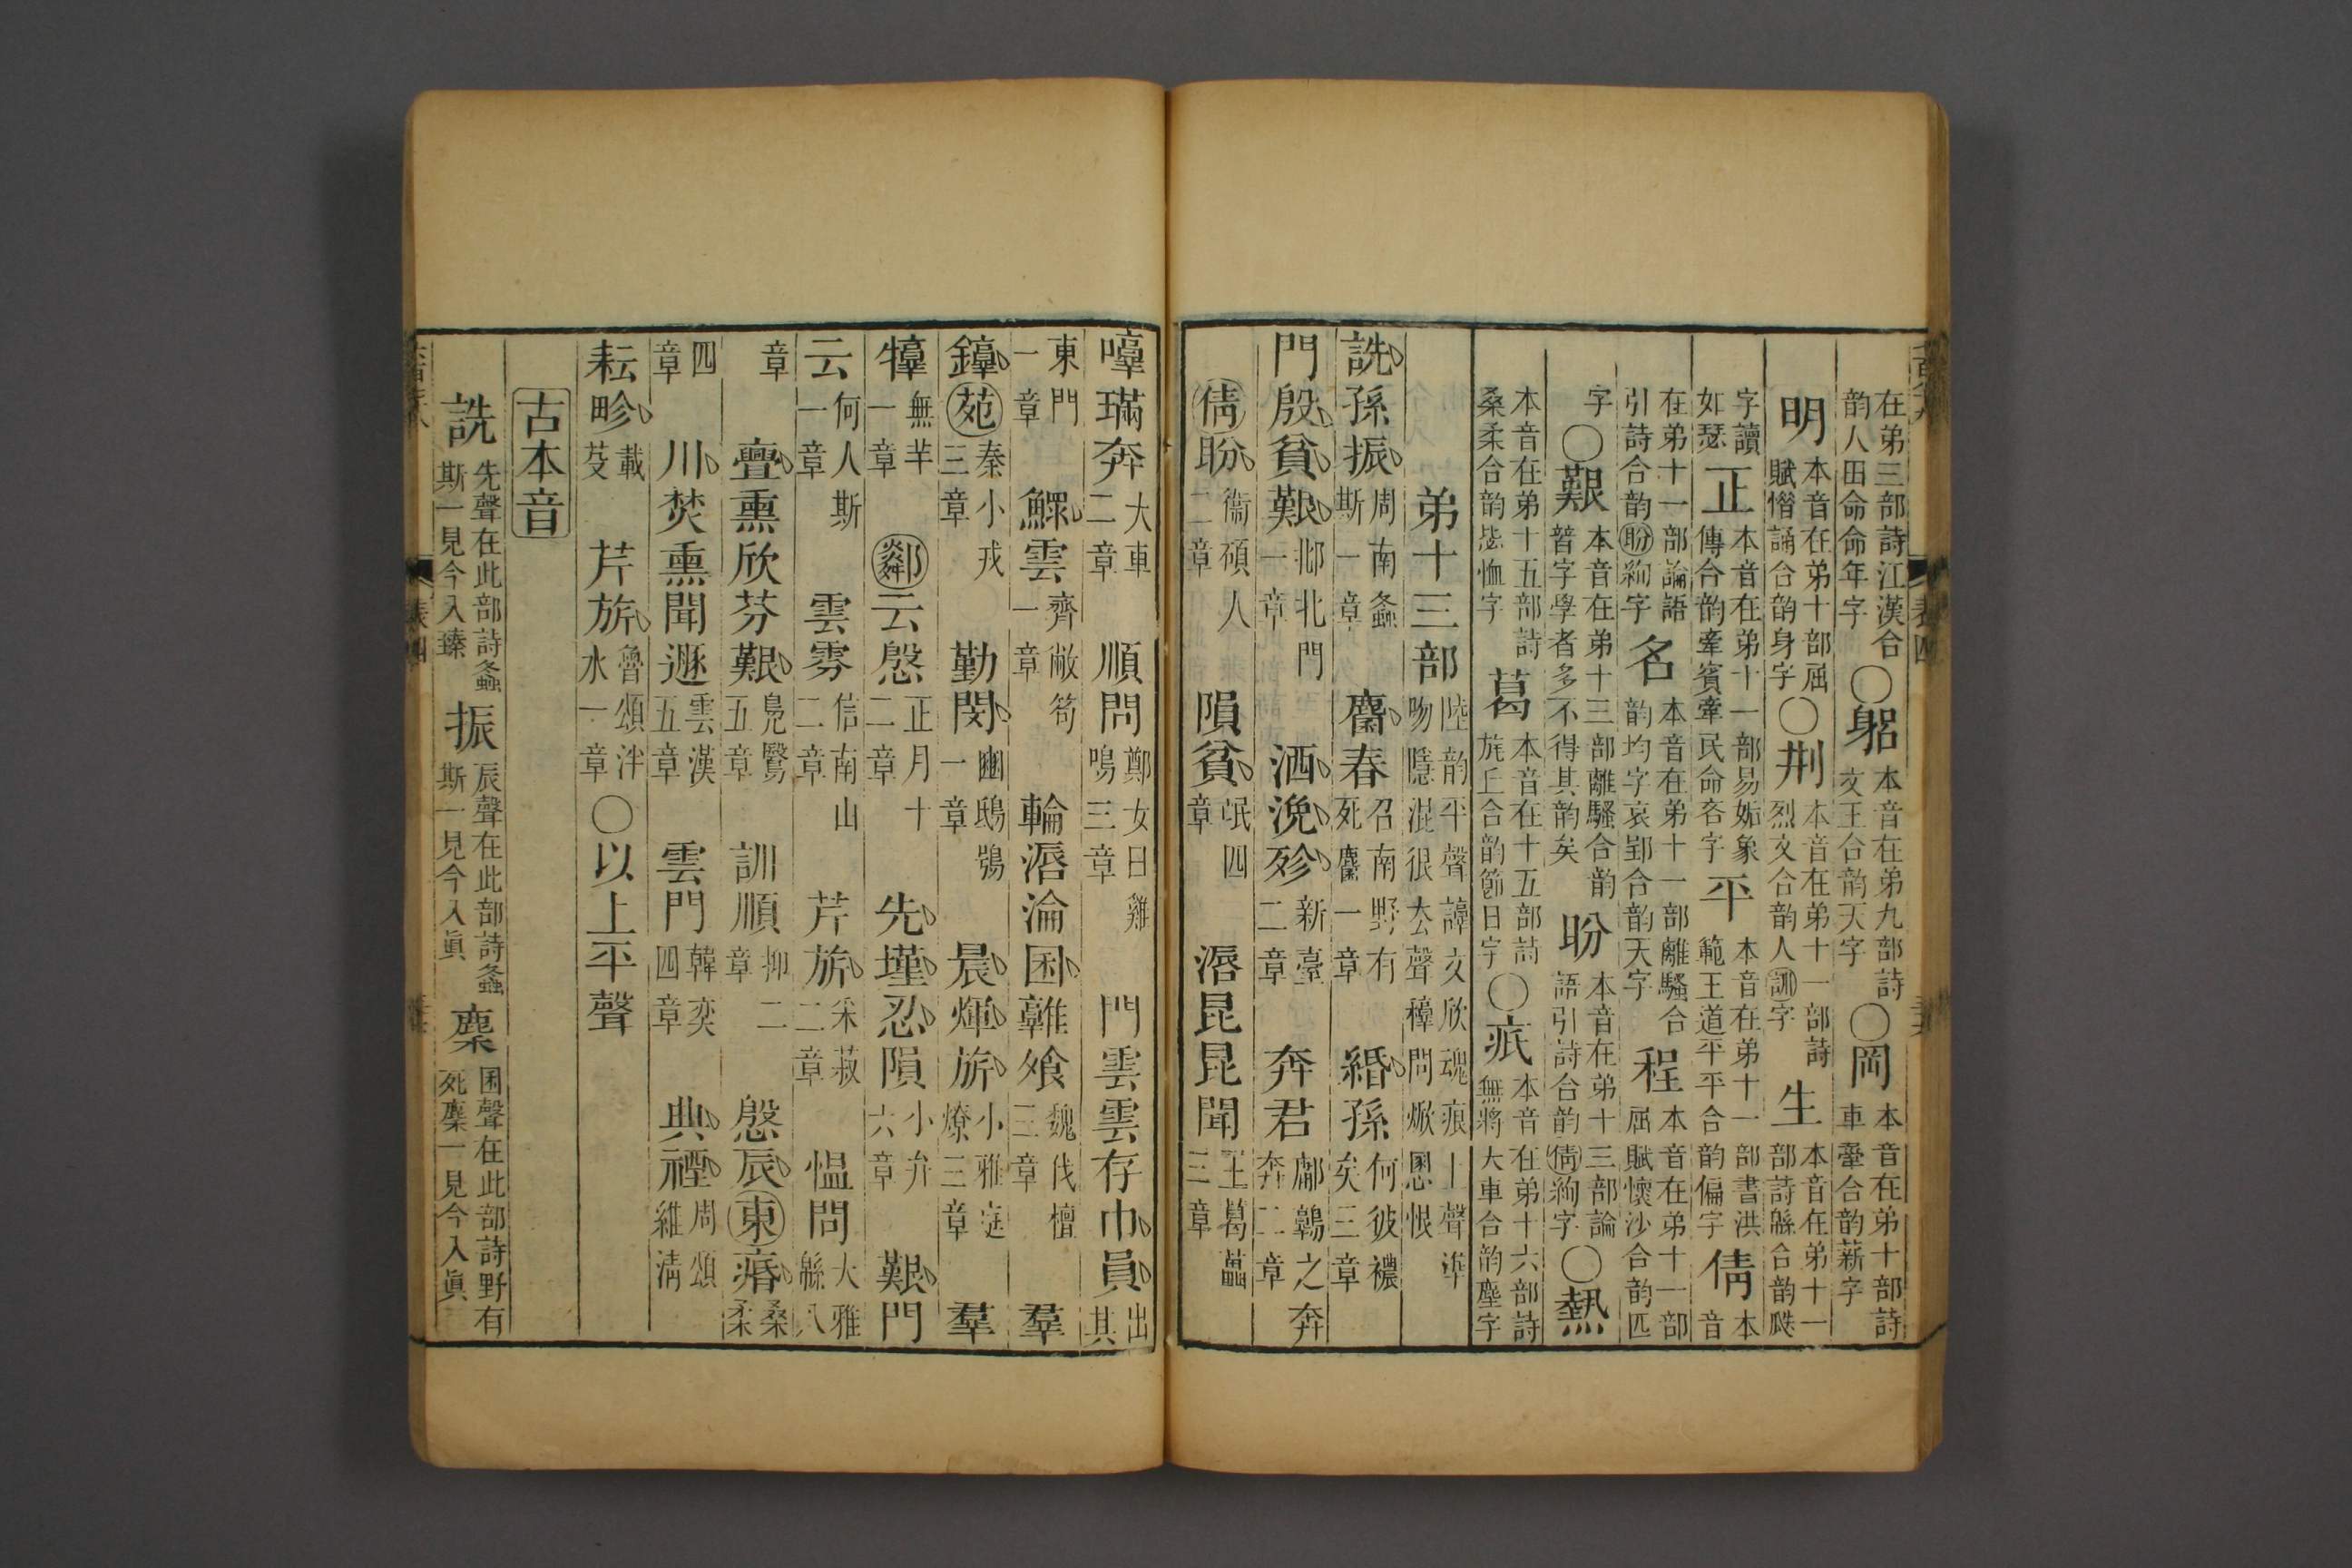 在弟三部詩江漢合韵人田命命年字○躳本音在弟九部詩文王合韵天字○岡本音在弟十部詩車舝合韵薪字
明本音在弟十部屈賦惜誦合韵身字○荆本音在弟十一部詩烈文合韵人訓字生本音在弟十一部詩緜合韵瓞
字讀如瑟正本音在弟十一部易姤象傳合韵牽賓牽民命吝字平本音在弟十一部書洪範王道平平合韵偏字倩本音
在弟十一部論語引詩合韵盼絢字名本音在弟十一部離騷合韵均字哀郢合韵天字程本音在弟十一部屈賦懷沙合韵匹
字○艱本音在弟十三部離騷合韵替字學者多不得其韵矣盼本音在弟十三部論語引詩合韵倩絢字○熱
本音在弟十五部詩桑柔合韵毖恤字葛本音在十五部詩旄丘合韵節日字○疧本音在弟十六部詩無將大車合韵塵字
弟十三部陸韵平聲諄文欣魂痕上聲準吻隱混很去聲稕問焮慁恨
詵孫振周南螽斯一章麕春召南野有死麕一章緡孫何彼襛矣三章
門殷貧艱邶北門一章洒浼殄新臺二章奔君鄘鶉之奔奔二章
倩盼衞碩人二章隕貧氓四章漘昆昆聞王葛藟三章
啍璊奔大車二章順問鄭女曰雞鳴三章門雲雲存巾員出其
東門一章鰥雲齊敝笱一章輪漘淪囷鶉飧魏伐檀三章羣
錞苑秦小戎三章勤閔豳鴟鴞一章晨煇旂小雅庭燎三章羣
犉無羊一章鄰云慇正月十二章先墐忍隕小弁六章艱門
云何人斯一章雲雰信南山二章芹旂采菽二章愠問大雅緜八
章亹熏欣芬艱鳧鷖五章訓順抑二章慇辰東痻桑柔
四章川焚熏聞遯雲漢五章雲門韓奕四章典禋周頌維清
耘畛載芟芹旂魯頌泮水一章○以上平聲
古本音
詵先聲在此部詩螽斯一見今入臻振辰聲在此部詩螽斯一見今入眞麇囷聲在此部詩野有死麇一見今入眞